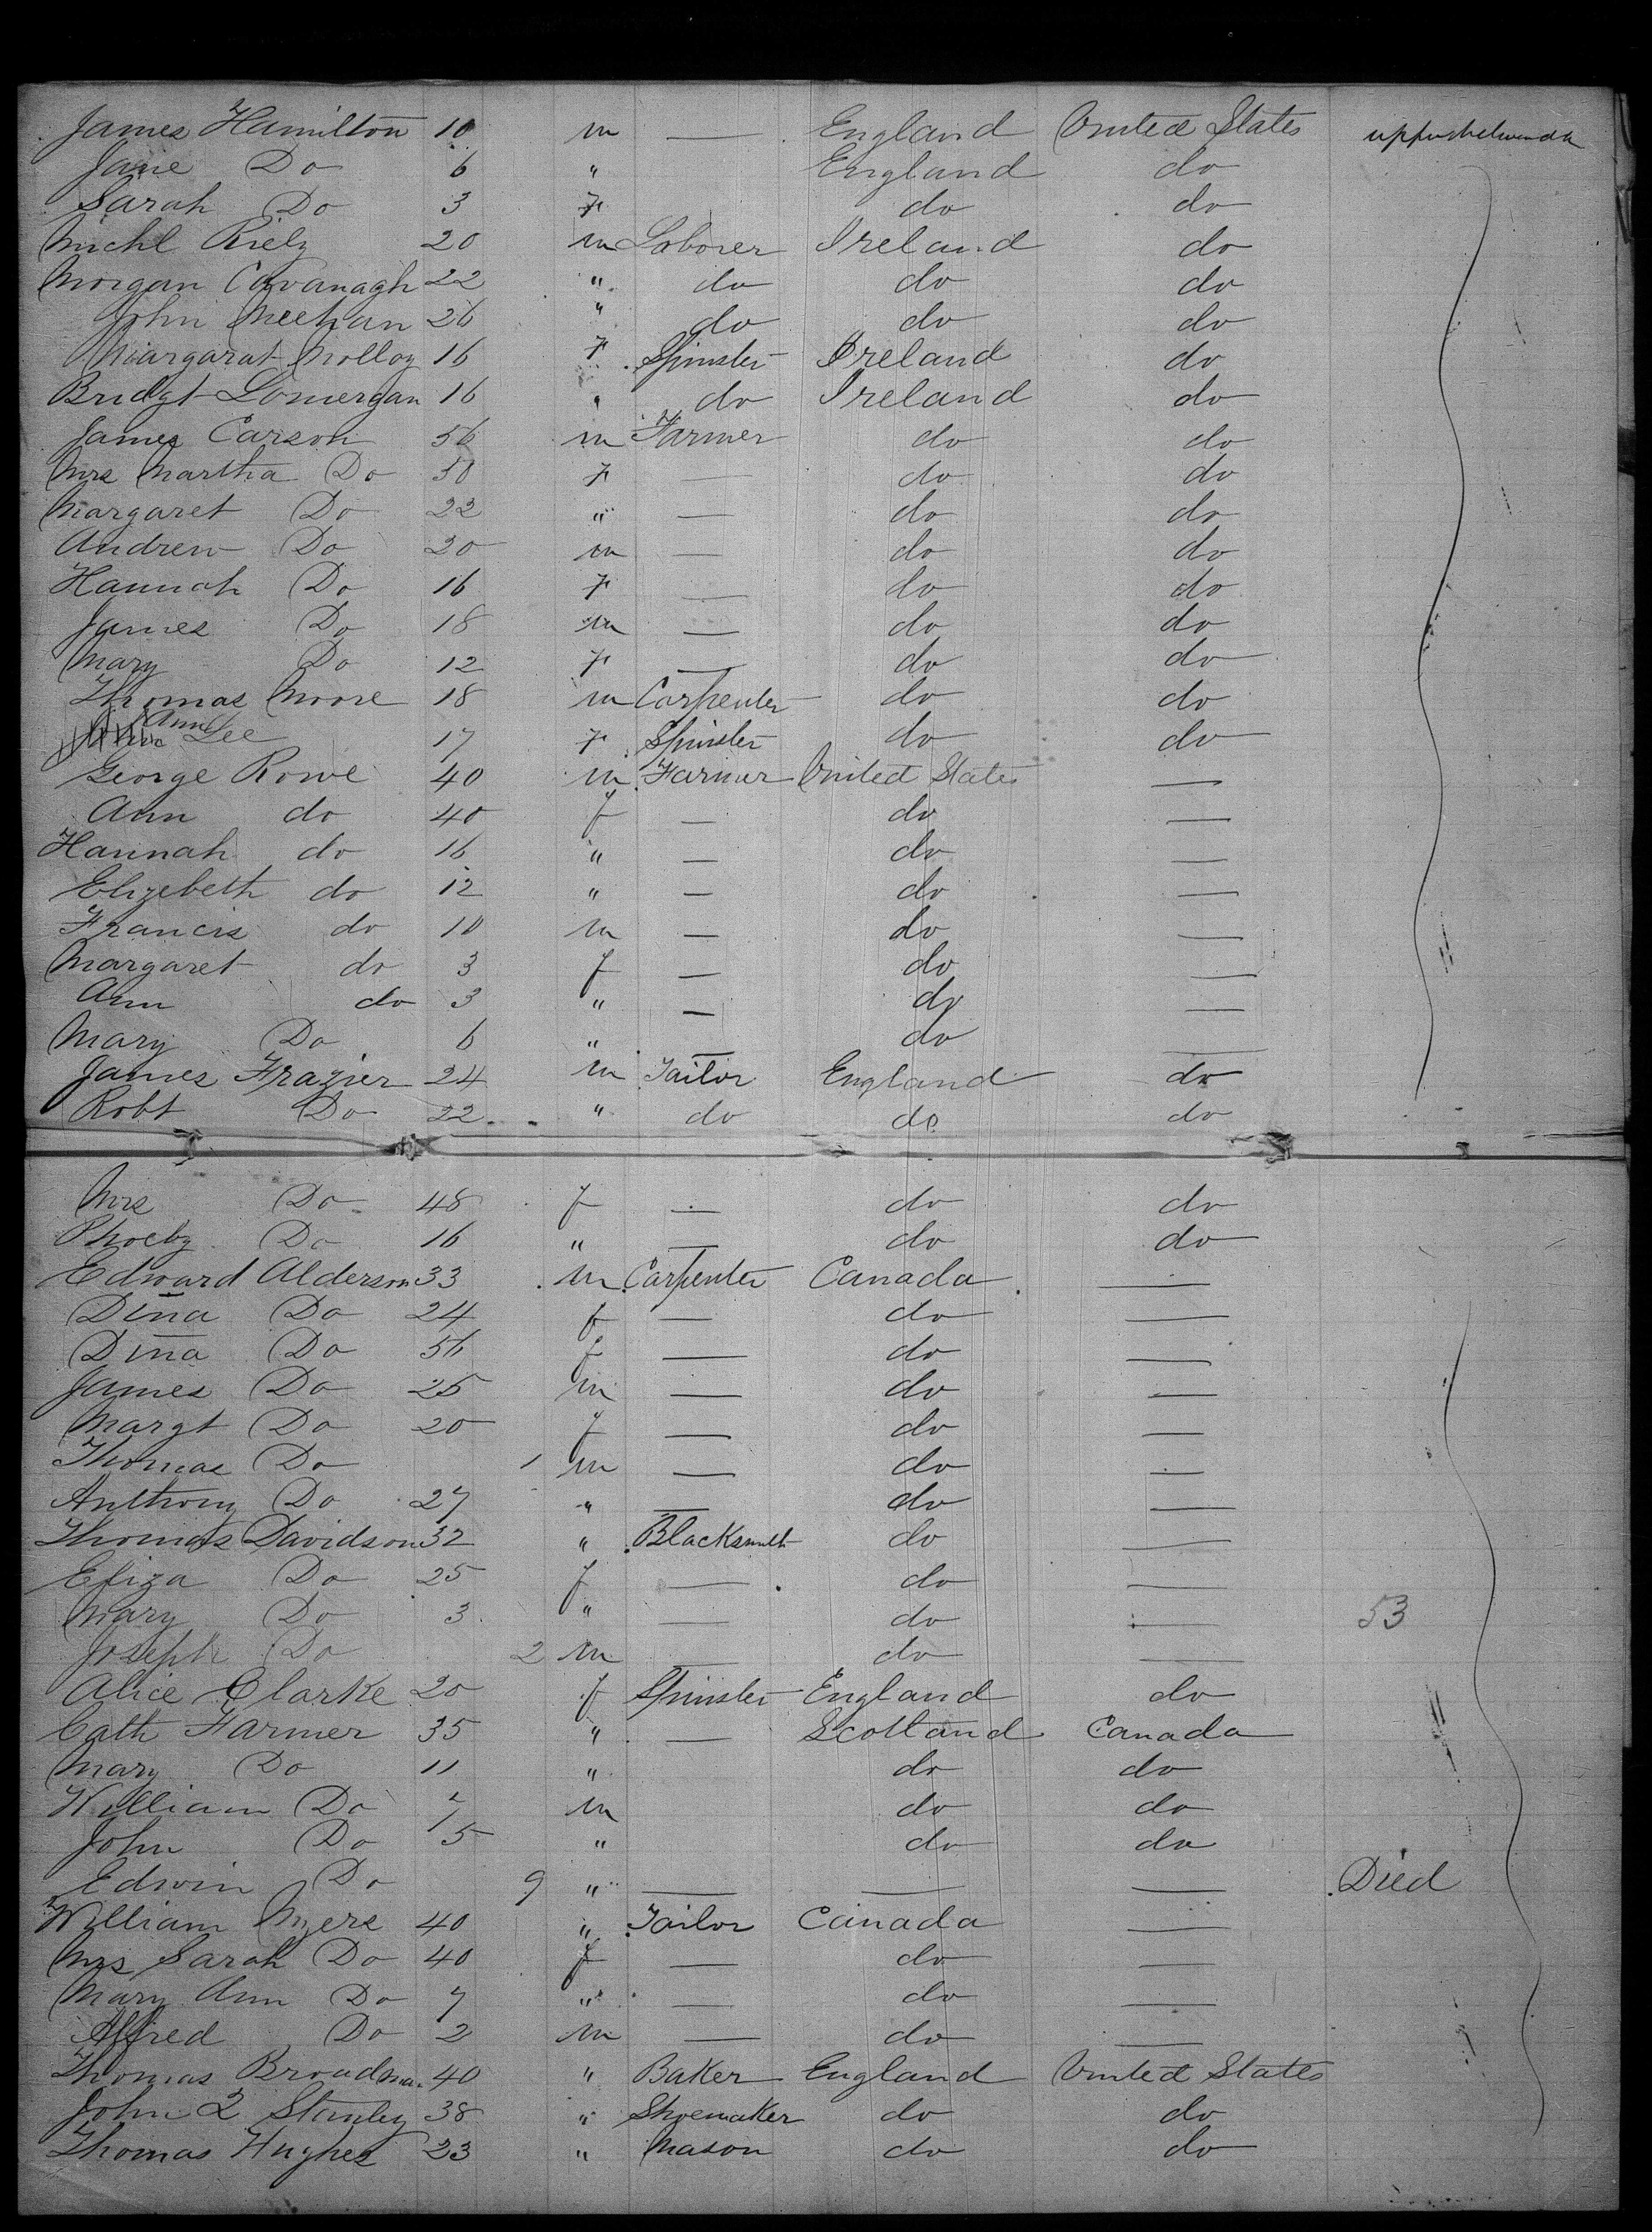 James Hamilton 10 m — England United States
Jane Do 6 " England do
Sarah Do 3 F do do
Michl Riely 20 m Laborer Ireland do
Morgan Cavanagh 22 " do do do
John Meehan 26 " do do do
Margarat Molloy 16 F Spinster Ireland do
Bridgt Lonergan 16 " do Ireland do
James Carson 56 m Farmer do do
Mrs Martha Do 50 F — do do
Margaret Do 22 " — do do
Andrew Do 20 m — do do
Hannah Do 16 F — do do
James Do 18 m — do do
Mary Do 12 F — do do
Thomas Moore 18 m Carpenter do do
Ann Lee 17 F Spinster do do
George Rowe 40 m Farmer United States —
Ann do 40 f — do —
Hannah do 16 " — do —
Elizebeth do 12 " — do —
Francis do 10 m — do —
Margaret do 3 f — do —
Ann do 3 " — do —
Mary Do 6 " — do —
James Frazier 24 m Tailor England do
Robt Do 22 " do do do
Mrs Do 48 f — do do
Phoeby Do 16 " — do do
Edward Alderson 33 m Carpenter Canada —
Dina Do 24 f — do —
Dina Do 56 f — do —
James Do 25 m — do —
Margt Do 20 f — do —
Thomas Do 1 m — do —
Anthony Do 27 " — do —
Thomas Davidson 32 " Blacksmith do —
Eliza Do 25 f — do —
Mary Do 3 " — do — 53
Joseph Do 2 m — do —
Alice Clarke 20 f Spinster England do
Cath Farmer 35 " — Scotland Canada
Mary Do 11 " do do
William Do 7 m do do
John Do 5 " do do
Edwin Do 9 " — — — Died
William Myers 40 " Tailor Canada —
Mrs Sarah Do 40 f — do —
Mary Ann Do 7 " — do —
Alfred Do 2 m — do —
Thomas 40 " Baker England United States
John Stanley 38 " Shoemaker do do
Thomas Hughes 23 " Mason do do